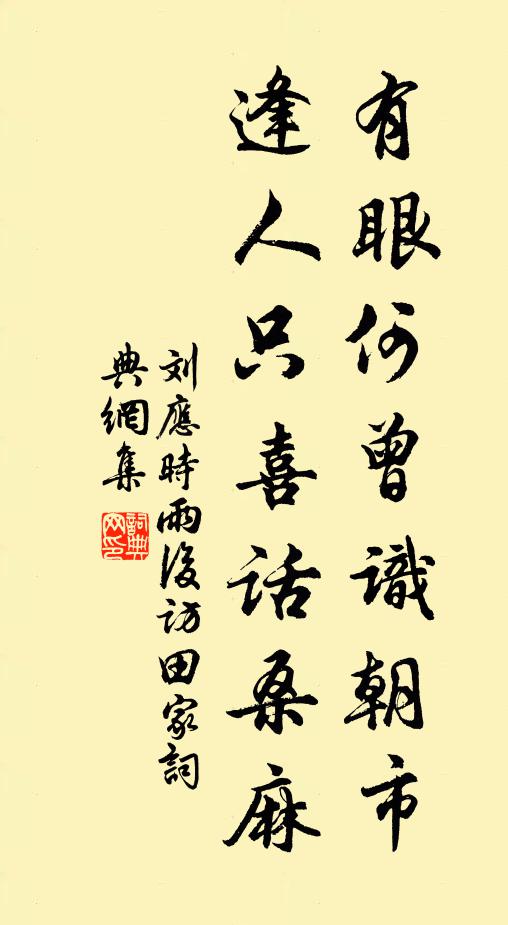 有眼何曾識朝市
逢人只喜話桑麻
刘應時雨後訪田家詞
典網集
詞典网印